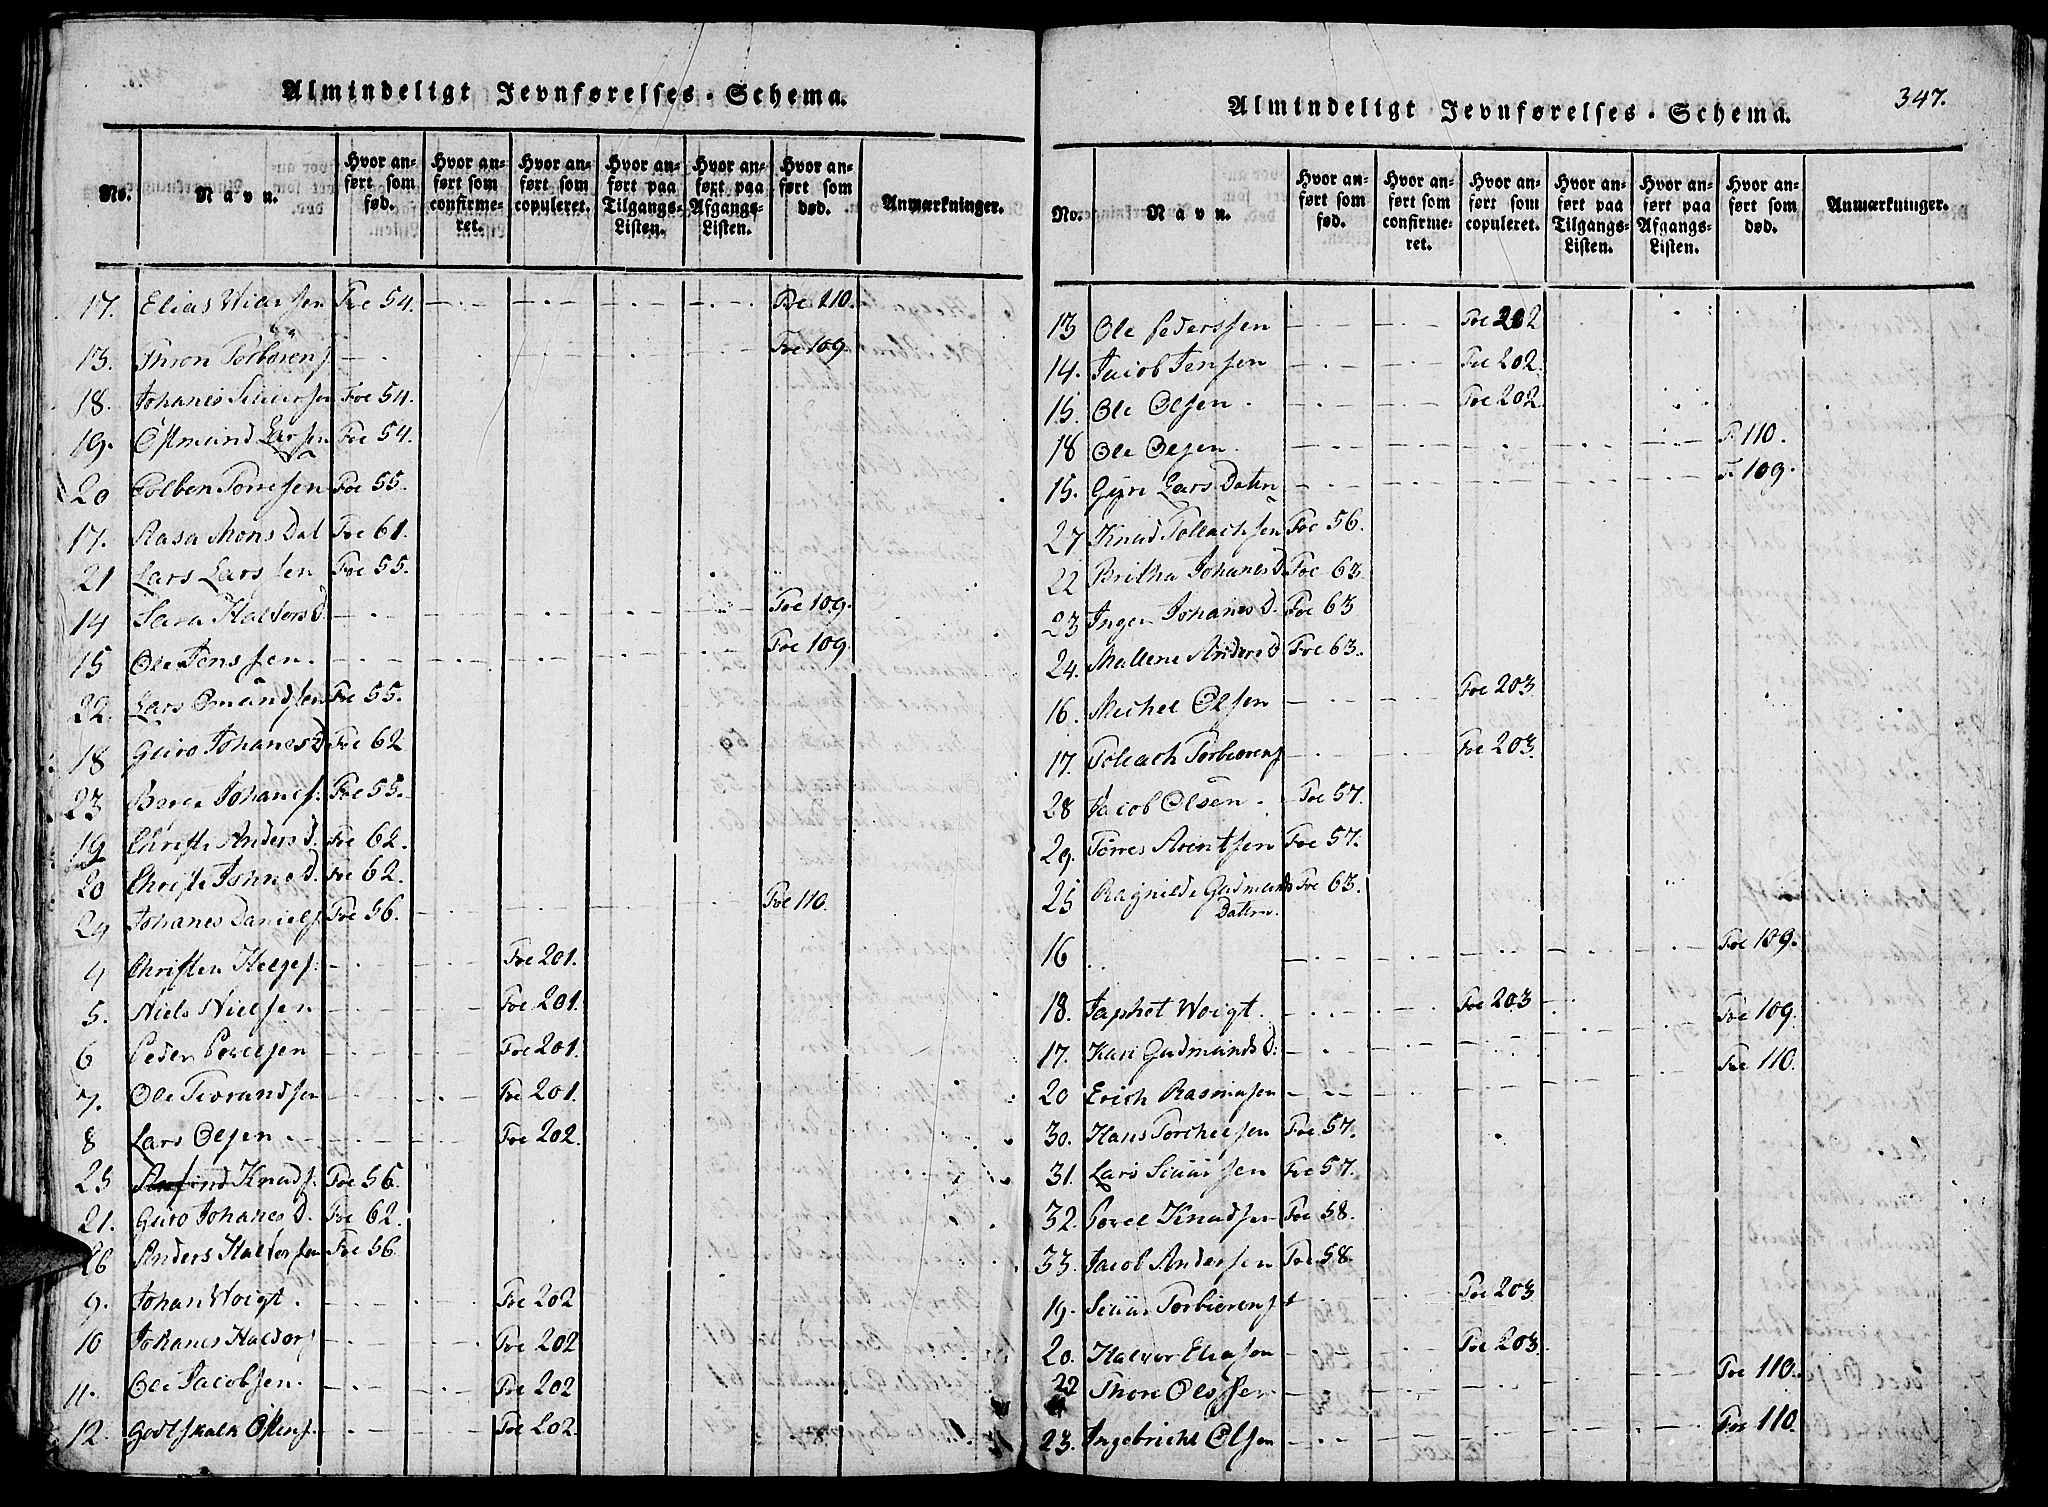 Almindeligt Jevnførelses-Schema.
No. Navn. Hvor anført som fød. Hvor anført som confirmeret. Hvor anført som copuleret. Hvor anført paa Tilgangs-Listen. Hvor anført paa Afgangs-Listen. Hvor anført som død. Anmærkninger.
17. Elias Foe 54. Foe 110.
13. Thron Torbörens Foe 109
18. Johanes Foe 54.
19. Östmund Larsen Foe 54.
20 Tolben Foe 55.
17. Aasa Mons Dat Foe 61.
21 Lars Larssen Foe 55.
14 Sara Halvors D. Foe 109.
15 Ole Jenssen. Foe 109.
22. Lars Omundsen Foe 55.
18 Guro Johanes D Foe 62
23 Johanes. Foe 55.
19 Christi Anders D. Foe 62.
20 Christi D. Foe 62.
24 Johanes Daniels. Foe 56. Foe 110.
4 Christen Helges. Foe 201.
5. Niels Nielsen Foe 201.
6 Peder Povelsen Foe 201.
7. Ole Foe 201.
8 Lars Olsen. Foe 202.
25 Knuds. Foe 56.
21. Guro Johanes D. Foe 62.
26 Anders Halvorsen Foe 56
9. Johan Woigt. Foe 202
10 Johanes Haldors Foe 202
11. Ole Jacobsen. Foe 202
12. Godtskalk Foe 202.
Almindeligt Jevnførelses-Schema. 347.
No. Navn. Hvor anført som fød. Hvor anført som confirmeret. Hvor anført som copuleret. Hvor anført paa Tilgangs-Listen. Hvor anført paa Afgangs-Listen. Hvor anført som død. Anmærkninger.
13 Ole Pederssen Foe 202
14. Jacob Jensen Foe 202.
15. Ole Olsen. Foe 202
18 Ole Olsen. F. 110.
15. Lars Datter F. 109.
27 Knud Tollachsen Foe 56.
22 Britha Johanes D. Foe 63
23 Inger Johanes D. Foe 63
24. Mallene Anders D Foe 63.
16. Michel Olsen Foe 203
17. Torbiorens Foe 203.
28 Jacob Olsen. Foe 57.
29. Torres Arentsen Foe 57.
25 Ragnilde Gudmunds Foe 63.
Datter.
16 Foe 109.
18. Japhet Woigt. Foe 203 Foe 109.
17. Kari Gudmunds D. Foe 110.
20 Erich Rasmusen
30. Hans Torchelsen Foe 57.
31. Lars Foe 57.
32. Povel Knudsen Foe 58.
33. Jacob Andersen Foe 58.
19. Torbiorens Foe 203
20. Halvor Eliasen Foe 203.
22 Thore Olssen Foe 110.
23. Ingebricht Olsen Foe 110.